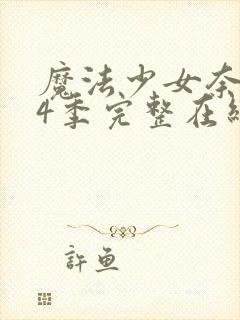 魔法少女奈
4季完整在线
許魚